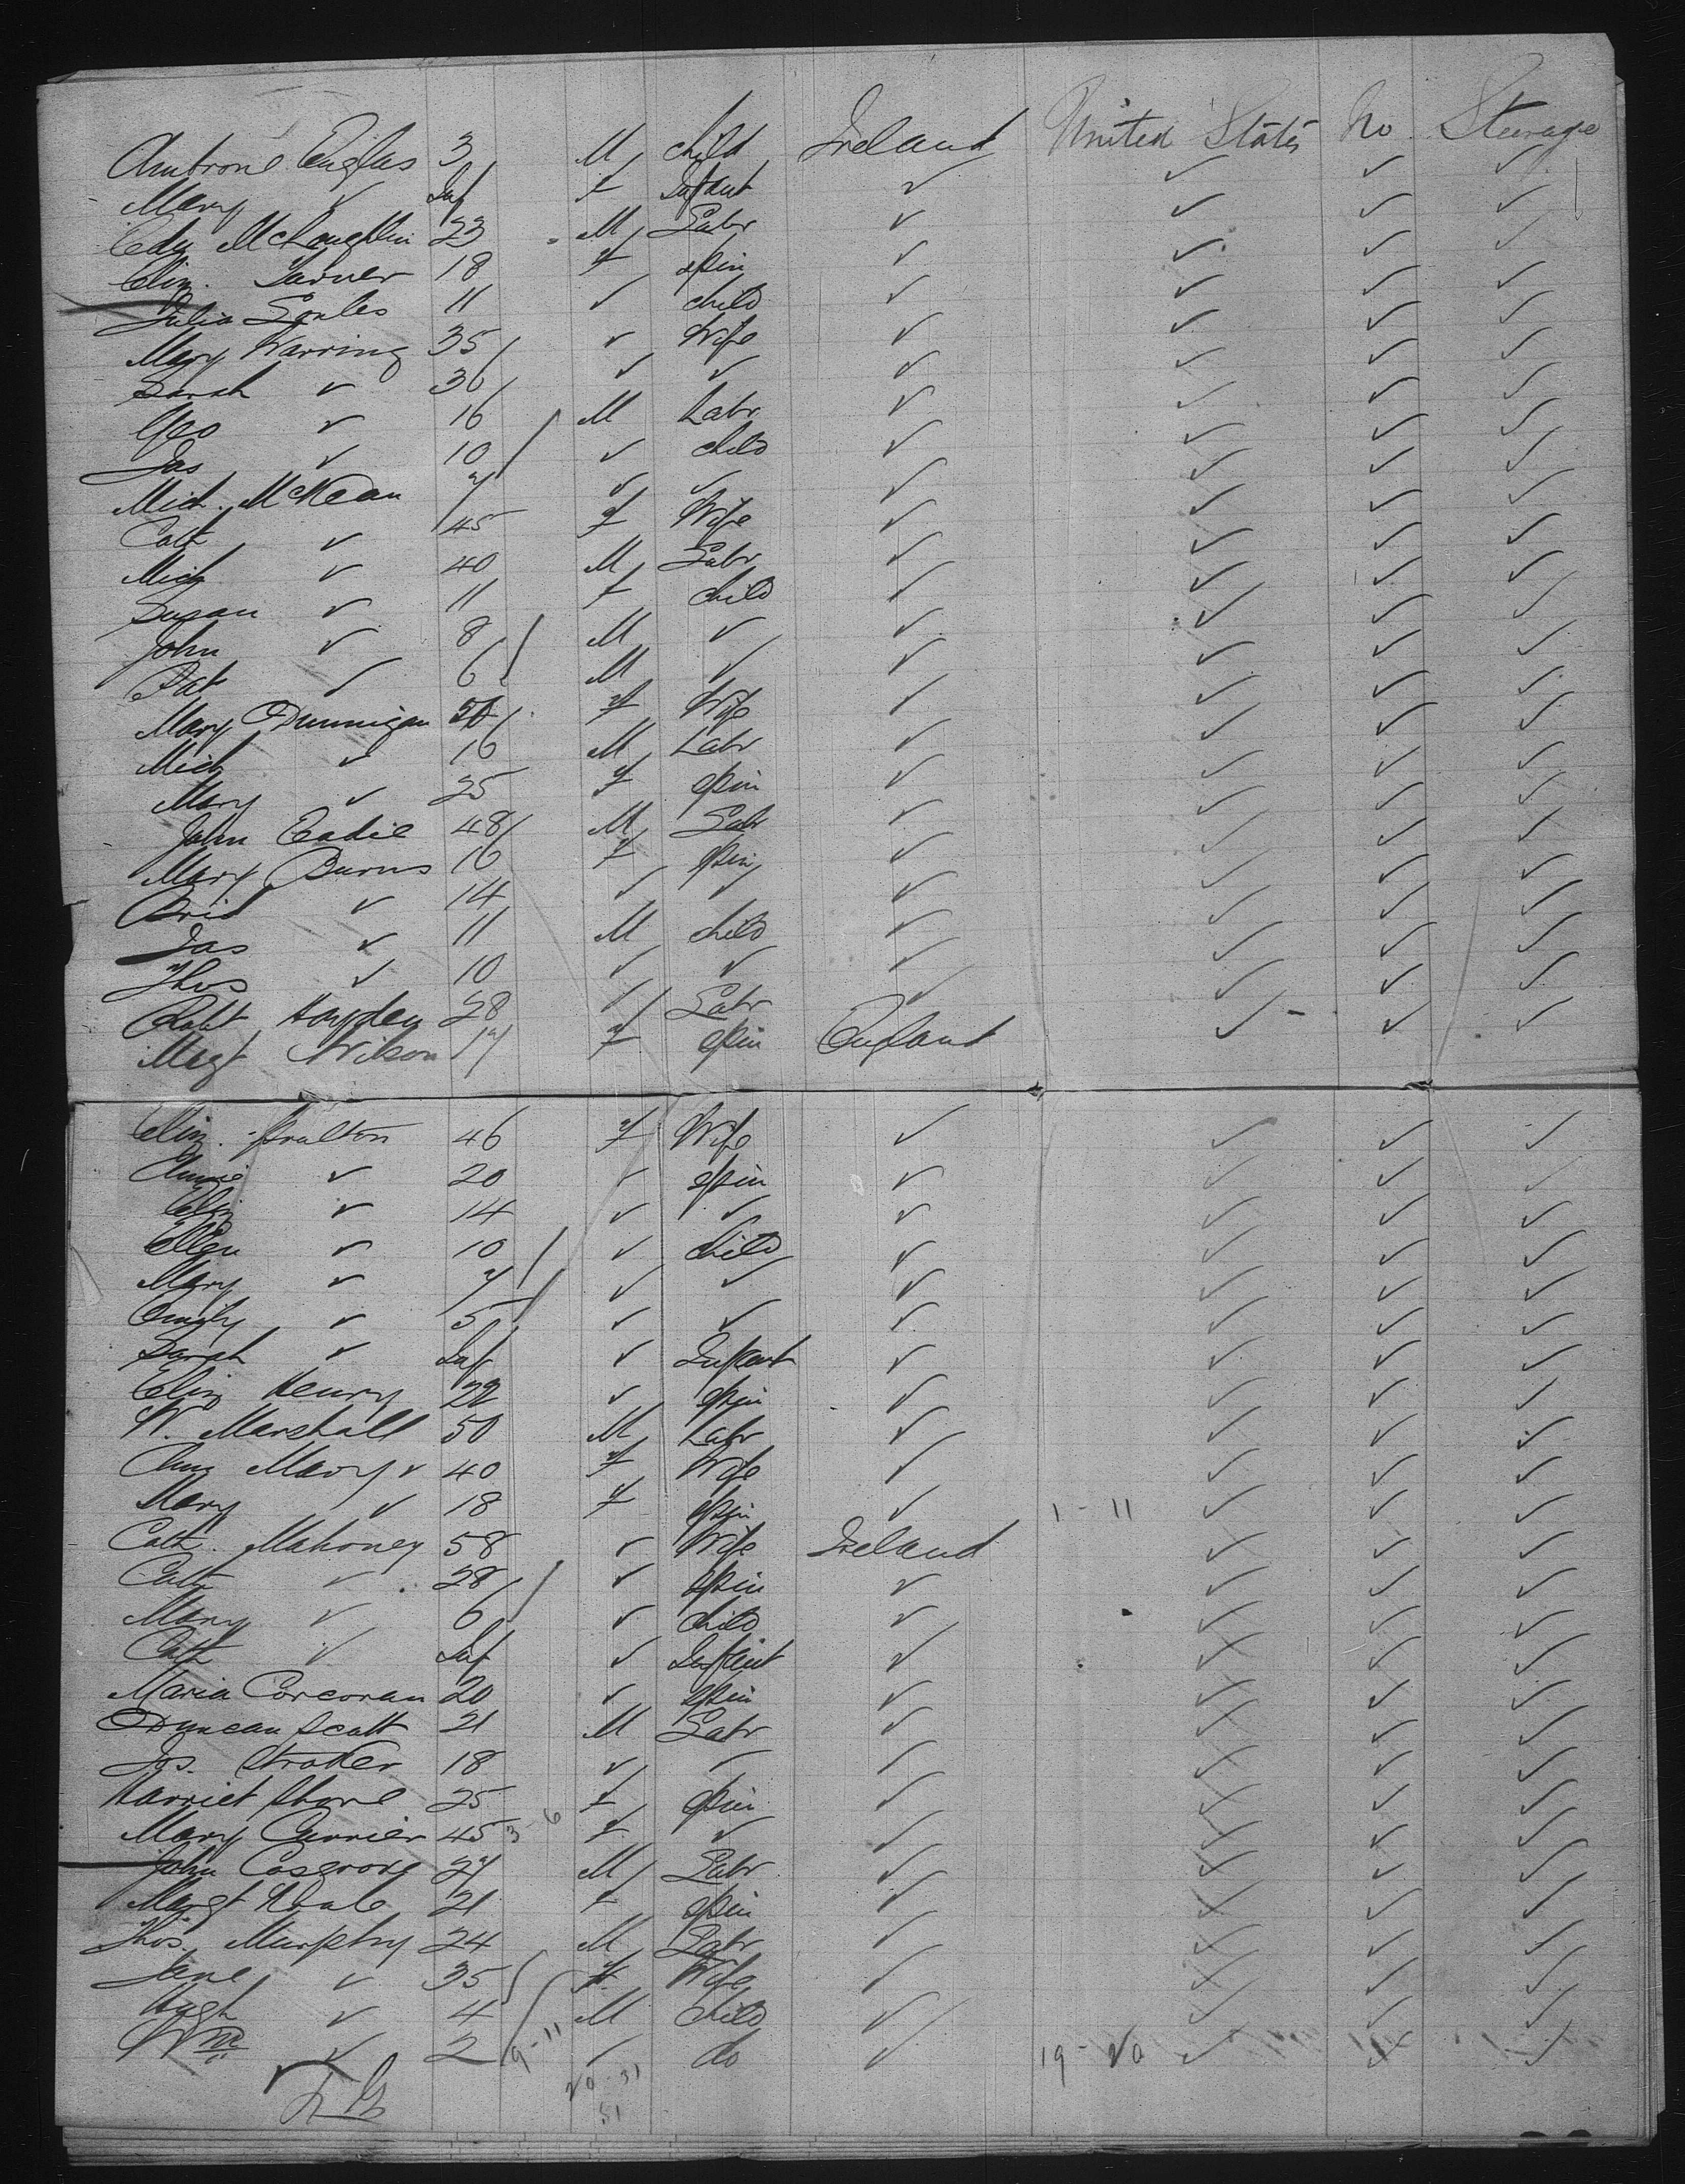 Ambrose 3 M child Ireland United States No Steerage
Mary ✓ Inf f Infant ✓ ✓ ✓ ✓
Edw McLoughlin 23 M Labr ✓ ✓ ✓ ✓
Eliz. 18 f spin ✓ ✓ ✓ ✓
Julia 11 ✓ child ✓ ✓ ✓ ✓
Mary Warring 35 ✓ Wife ✓ ✓ ✓ ✓
Sarah ✓ 36 ✓ ✓ ✓ ✓ ✓ ✓
Geo ✓ 16 M Labr ✓ ✓ ✓ ✓
Jas ✓ 10 ✓ child ✓ ✓ ✓ ✓
Mich. McKean 7 ✓ ✓ ✓ ✓ ✓ ✓
Cath ✓ 45 f Wife ✓ ✓ ✓ ✓
Mich ✓ 40 M Labr ✓ ✓ ✓ ✓
Susan ✓ 11 f child ✓ ✓ ✓ ✓
John ✓ 8 M ✓ ✓ ✓ ✓ ✓
Pat ✓ 6 M ✓ ✓ ✓ ✓ ✓
Mary Dunnigan f Wife ✓ ✓ ✓ ✓
Mich ✓ 16 M Labr ✓ ✓ ✓ ✓
Mary ✓ 25 f spin ✓ ✓ ✓ ✓
John Eadie 48 M Labr ✓ ✓ ✓ ✓
Mary Burns 16 f spin ✓ ✓ ✓ ✓
Brid ✓ 14 ✓ ✓ ✓ ✓ ✓ ✓
Jas ✓ 11 M child ✓ ✓ ✓ ✓
Thos ✓ 10 ✓ ✓ ✓ ✓ ✓ ✓
Robt Hayden 28 ✓ Labr ✓ ✓ ✓ ✓
Megt Wilson 17 f spin England ✓ ✓ ✓
Eliz. 46 f Wife ✓ ✓ ✓ ✓
Annie ✓ 20 ✓ spin ✓ ✓ ✓ ✓
Eliz ✓ 14 ✓ ✓ ✓ ✓ ✓ ✓
Ellen ✓ 10 ✓ child ✓ ✓ ✓ ✓
Mary ✓ 7 ✓ ✓ ✓ ✓ ✓ ✓
Emily ✓ 5 ✓ ✓ ✓ ✓ ✓ ✓
Sarah ✓ Inf ✓ Infant ✓ ✓ ✓ ✓
Eliz Henry 22 ✓ spin ✓ ✓ ✓ ✓
W. Marshall 50 M Labr ✓ ✓ ✓ ✓
Ann Mary ✓ 40 f Wife ✓ ✓ ✓ ✓
Mary ✓ 18 f spin ✓ 1 - 11 ✓ ✓ ✓
Cath. Mahoney 58 ✓ Wife Ireland ✓ ✓ ✓
Cath ✓ 28 ✓ spin ✓ ✓ ✓ ✓
Mary ✓ 6 ✓ child ✓ ✓ ✓ ✓
Cath ✓ Inf ✓ Infant ✓ ✓ ✓ ✓
Maria Corcoran 20 ✓ spin ✓ ✓ ✓ ✓
Duncan Scott 21 M Labr ✓ ✓ ✓ ✓
Jos. Stroker 18 ✓ ✓ ✓ ✓ ✓ ✓
Harriet Stone 25 f spin ✓ ✓ ✓ ✓
Mary Currier 45 3 - 6 f ✓ ✓ ✓ ✓ ✓
John Cosgrove 27 M Labr ✓ ✓ ✓ ✓
Margt 21 f spin ✓ ✓ ✓ ✓
Thos. Murphy 24 M Labr ✓ ✓ ✓ ✓
Jane ✓ 35 f Wife ✓ ✓ ✓ ✓
Hugh ✓ 4 M child ✓ ✓ ✓ ✓
Wm ✓ 2 9-11 ✓ do ✓ 19 - 20 ✓ ✓ ✓
20 - 31
51